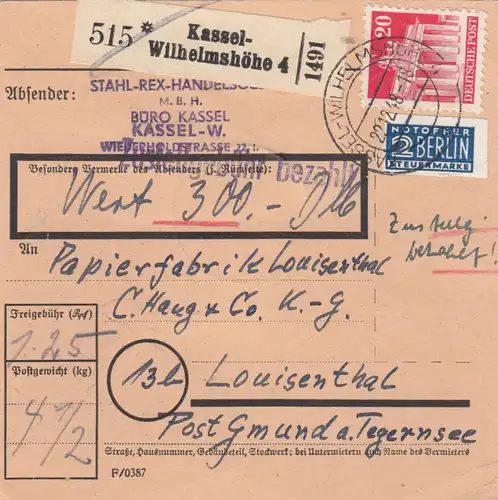 515 *
Kassel-
Wilhelmshöhe 4
1491
20
DEUTSCHE POST
22.12.48
NOTOPFER
2 BERLIN
STEUERMARKE
Absender:
STAHL-REX-HANDELSGES
M. B. H.
BÜRO KASSEL
KASSEL-W.
WIEDERHOLDSTRASSE 22, I.
bezahlt
Besondere Vermerke des Absenders (s. Rückseite):
Wert 300.- DM
Zustellg.
bezahlt!
An
Papierfabrik Louisenthal
C. Haug & Co. K.-G.
Freigebühr (Rpf)
1.25
Postgewicht (kg)
4 1/2
13b Louisenthal
Post Gmund a. Tegernsee
Straße, Hausnummer, Gebäudeteil, Stockwerk; bei Untermietern auch Name des Vermieters
F/0387